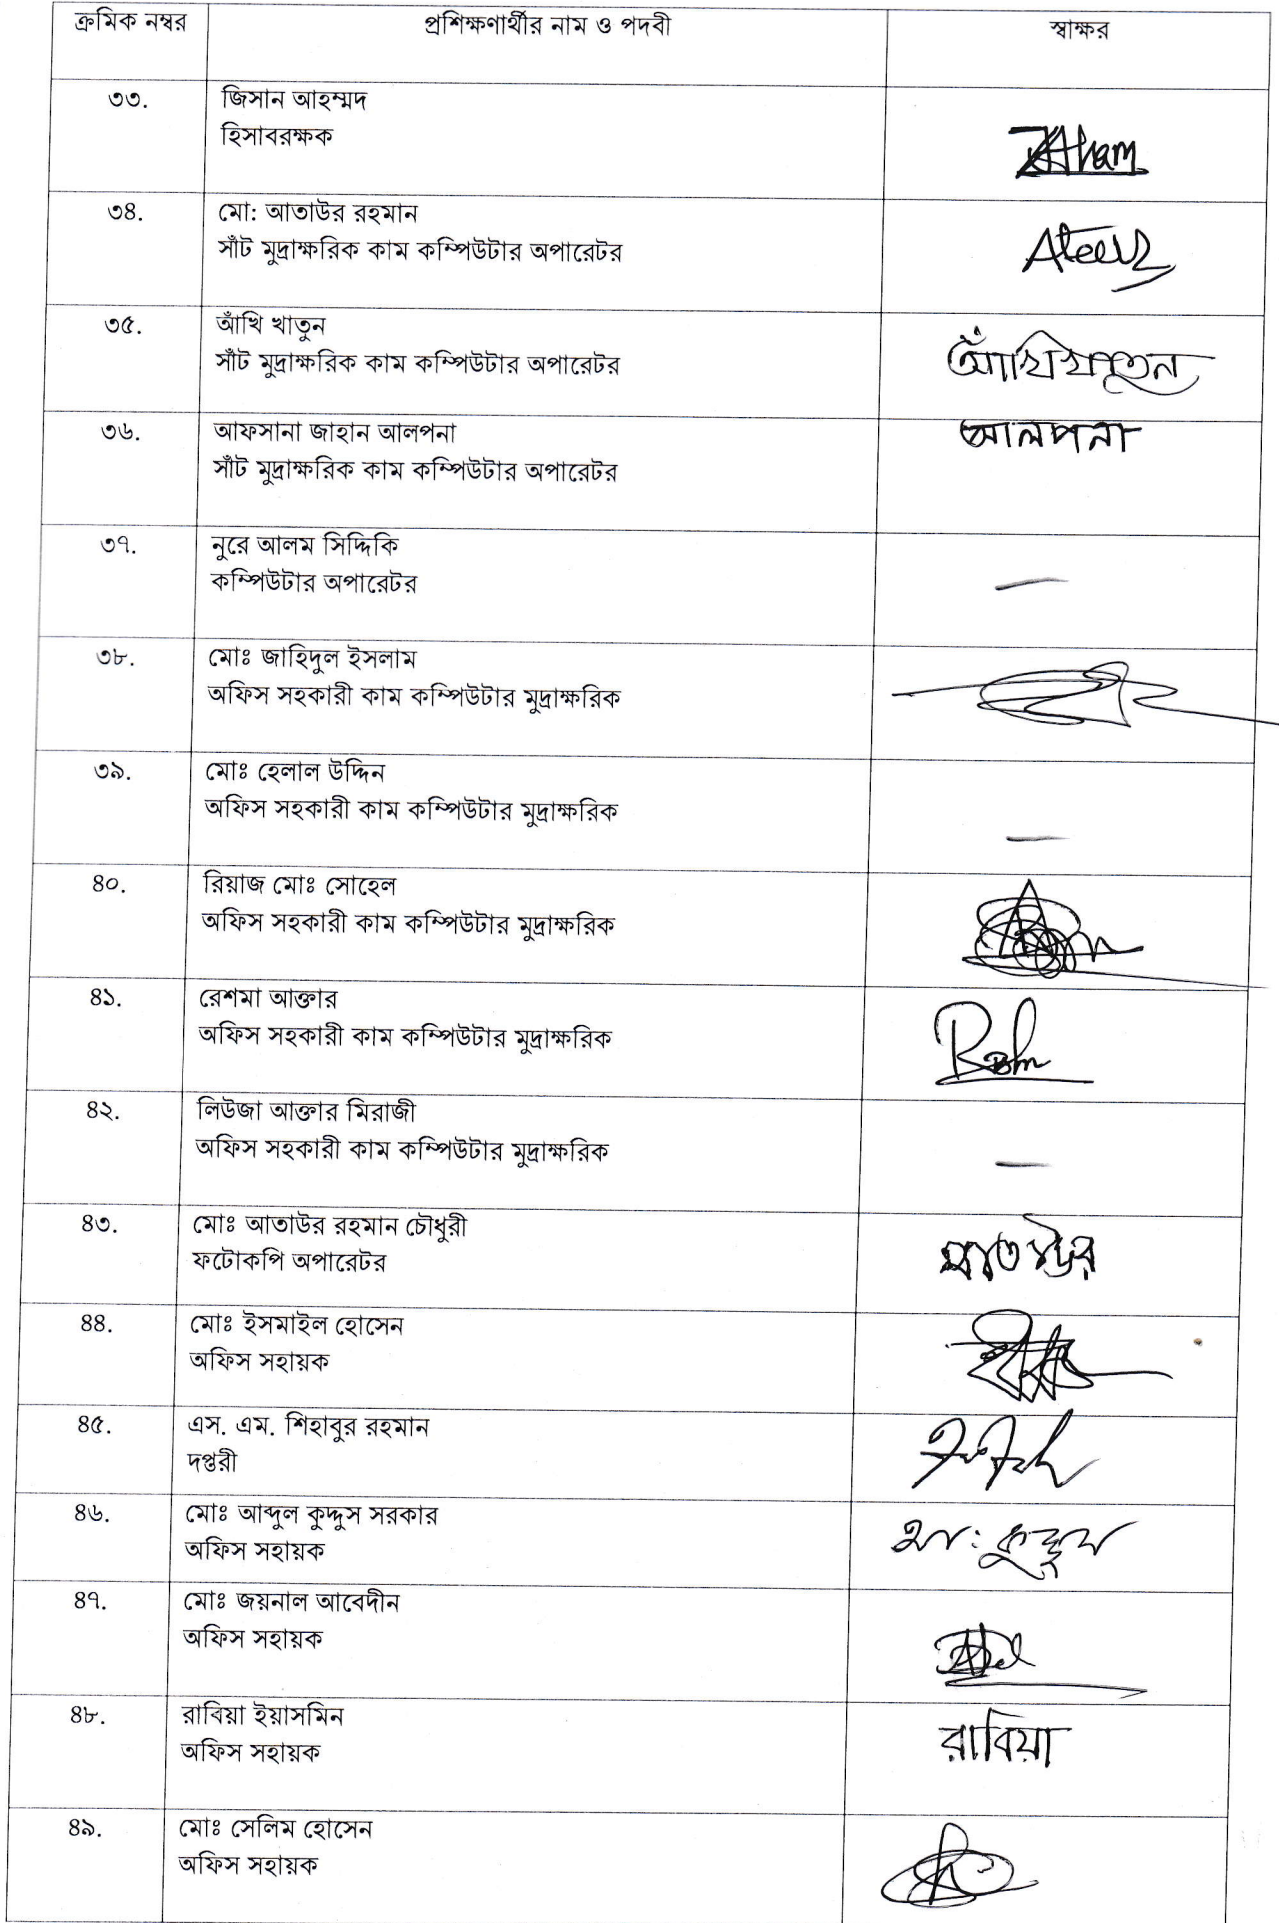 ক্রমিক নম্বর প্রশিক্ষণার্থীর নাম ও পদবী স্বাক্ষর
৩৩. জিসান আহম্মদ
হিসাবরক্ষক
৩৪. মো: আতাউর রহমান
সাঁট মুদ্রাক্ষরিক কাম কম্পিউটার অপারেটর
৩৫. আঁখি খাতুন
সাঁট মুদ্রাক্ষরিক কাম কম্পিউটার অপারেটর আঁখি খাতুন
৩৬. আফসানা জাহান আলপনা আলপনা
সাঁট মুদ্রাক্ষরিক কাম কম্পিউটার অপারেটর
৩৭. নুরে আলম সিদ্দিকি
কম্পিউটার অপারেটর —
৩৮. মোঃ জাহিদুল ইসলাম
অফিস সহকারী কাম কম্পিউটার মুদ্রাক্ষরিক
৩৯. মোঃ হেলাল উদ্দিন
অফিস সহকারী কাম কম্পিউটার মুদ্রাক্ষরিক
—
৪০. রিয়াজ মোঃ সোহেল
অফিস সহকারী কাম কম্পিউটার মুদ্রাক্ষরিক
৪১. রেশমা আক্তার
অফিস সহকারী কাম কম্পিউটার মুদ্রাক্ষরিক
৪২. লিউজা আক্তার মিরাজী
অফিস সহকারী কাম কম্পিউটার মুদ্রাক্ষরিক
—
৪৩. মোঃ আতাউর রহমান চৌধুরী
ফটোকপি অপারেটর আতাউর
৪৪. মোঃ ইসমাইল হোসেন
অফিস সহায়ক
৪৫. এস. এম. শিহাবুর রহমান
দপ্তরী
৪৬. মোঃ আব্দুল কুদ্দুস সরকার
অফিস সহায়ক আ: কুদ্দুস
৪৭. মোঃ জয়নাল আবেদীন
অফিস সহায়ক
৪৮. রাবিয়া ইয়াসমিন
অফিস সহায়ক রাবিয়া
৪৯. মোঃ সেলিম হোসেন
অফিস সহায়ক